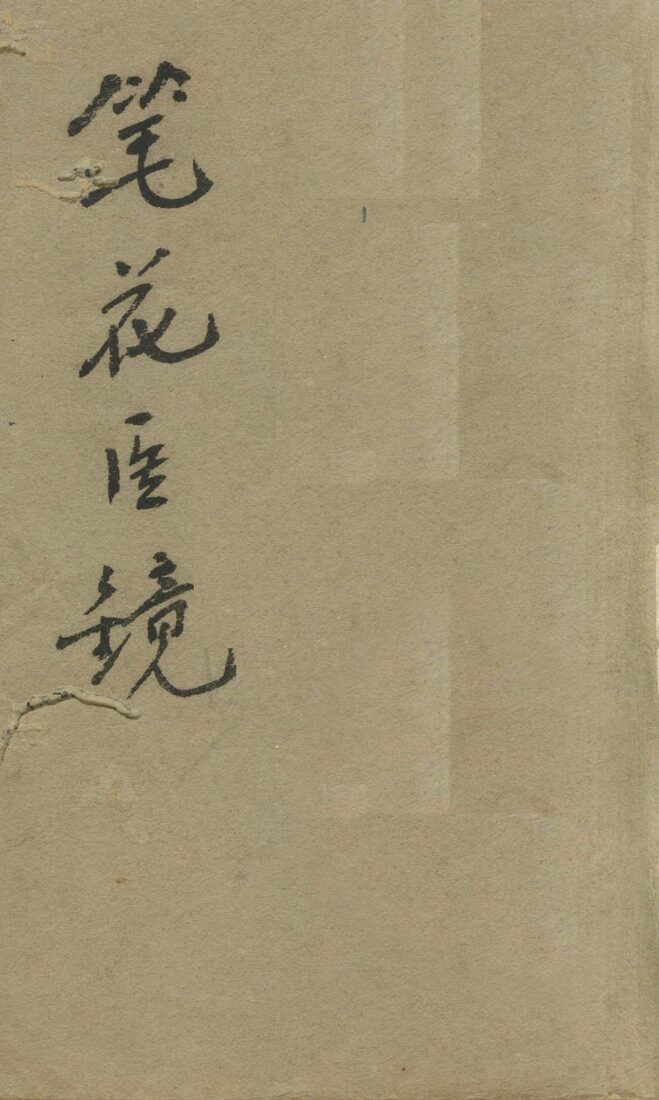 笔花医镜